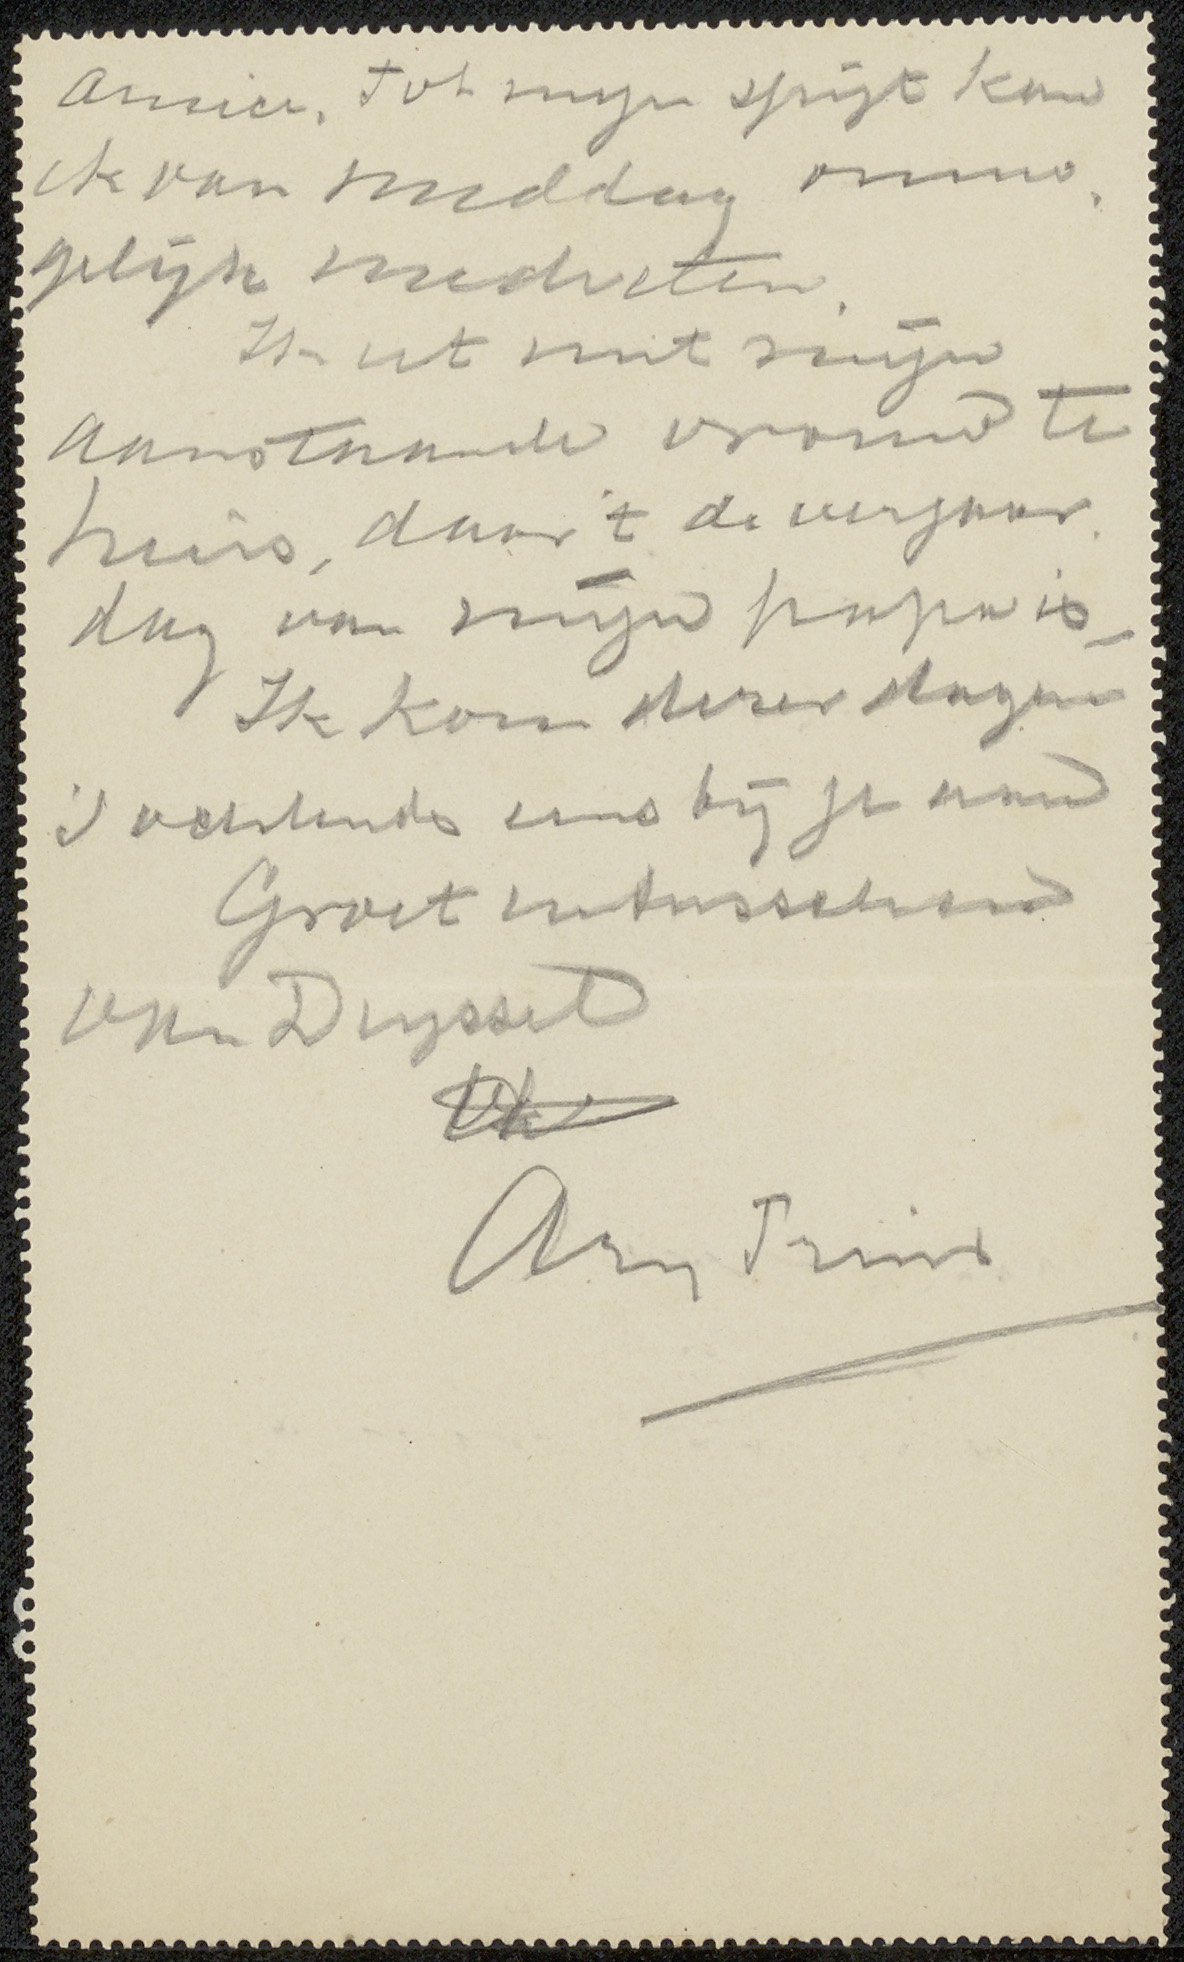 Amice, Tot mijn spijt kan
ik van middag onmo-
gelijk medeeten.
Ik eet met mijn
aanstaande vrouw te
huis, daar 't de verjaar-
dag van mijn papa is_
Ik kom dezer dagen
's ochtends eens bij je aan
Groet intusschen
van Deyssel
Ary Prins